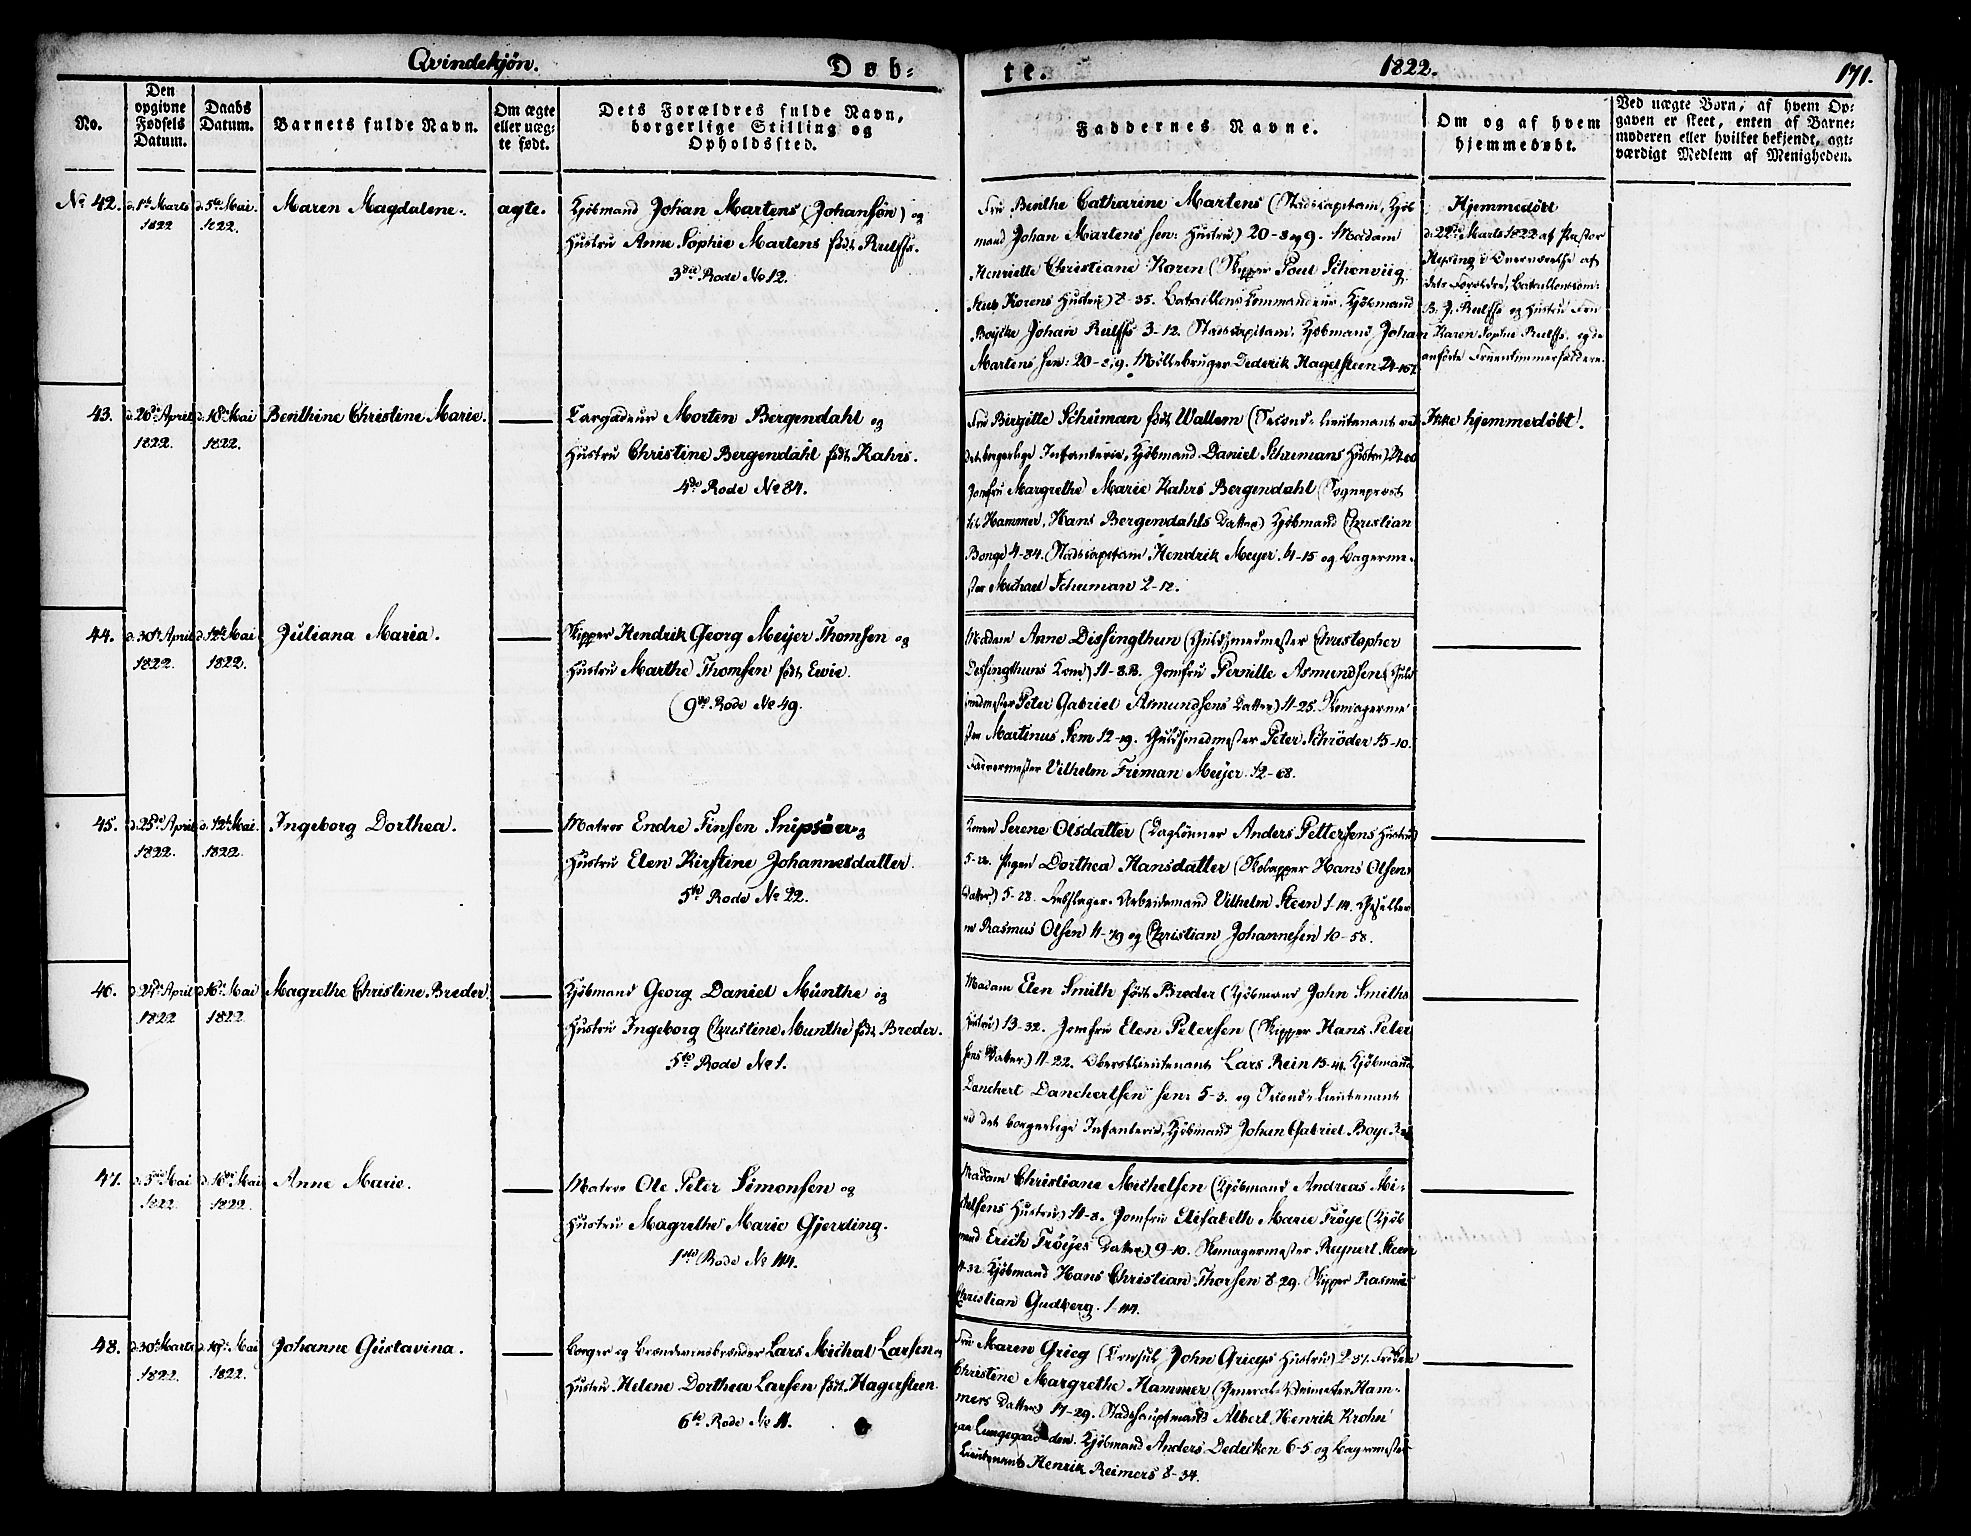 Qvindekjøn.
Døb-
te.
1822.
171.
No.
Den opgivne Fødsels Datum.
Daabs Datum.
Barnets fulde Navn.
Om ægte eller uæg-te født.
Dets Forældres fulde Navn, borgerlige Stilling og Opholdssted.
Faddernes Navne.
Om og af hvem hjemmedøbt.
Ved uægte Børn, af hvem Op-gaven er skeet, enten af Barne-moderen eller hvilket bekjendt, agt-værdigt Medlem af Menigheden.
No 42.
d. 1ste Marts 1822
d. 5te Mai. 1822.
Maren Magdalene.
ægte.
Kjøbmand Johan Martens (Johansøn) og
Hustru Anne Sophie Martens født Rulffs.
3die Rode No 12.
Fru Benthe Catharine Martens (Stadscapitain, Kjøb
mand Johan Martens sen: Hustru) 20-8 og 9. Madam
Henriette Christiane Koren (Skipper Poul Schonviig
Koren's Hustru) 8-35. Bataillons Commandeur, Kjøbmand
Boyske Johan Rulffs 3-12. Stadscapitain, Kjøbmand, Johan
Martens sen: 20-8, 9. Møllebruger Dederik Hagelsteen 24-167.
Hjemmedøbt
d. 22de Marts 1822 af Pastor
i Overværelse af
dets Forældre, Bataillonscom:
B. J. Rulffs og Hustru Fru
Karen Sophie Rulffs, og de
anførte Fruentimmerfaddere.
43.
d. 26de April 1822.
d. 18de Mai 1822.
Benthine Christine Marie.
Targadeur Morten Bergendahl og
Hustru Christine Bergendahl født Kahrs.
4de Rode No 84.
Fru Birgitte Schuman født Wallem (Second-Lieutenant ved
det borgerlige Infanterie, Kjøbmand Daniel Schumans Hustru) 24-60
Jomfru Margrethe Marie Kahrs Bergendahl (Sognepræst
til Hammer, Hans Bergendahls Datter) Kjøbmand Christian
Bonge 4-84. Stadscapitain Hendrik Meyer 4-15 og Bagerme-
ster Michael Schuman 2-12.
Ikke hjemmedøbt!
44.
d. 30te April 1822.
d. 12te Mai 1822.
Juliana Maria.
Skipper Hendrik Georg Meyer Thomsen og
Hustru Marthe Thomsen født Ewie.
(9de Rode No 49.
Madam Anne Dissingthun (Guldsmedmester Christopher
Dissingthuns Kone) 11-8B. Jomfru Pernille Asmundsen (Guld
smedmester Peter Gabriel Asmundsens Datter) 11-25. Skomagerme
ster Martinus Sem 12-19. Guldsmedmester Peter Schrøder 15-10.
Farvermester Vilhelm Friman Meyer. 12-68.
45.
d. 25de April 1822.
d. 12te Mai. 1822
Ingeborg Dorthea.
Matros Endre Finsen Snipsøer og
Hustru Elen Kirstine Johannesdatter.
5te Rode No 22.
Konen Serene Olsdatter (Daglønner Anders Pettersens Hustru)
5-28. Pigen Dorthea Hansdatter (Hans Olsens
Datter) 5-28. Arbeidsmand Vilhelm Steen 1-14. Gesellen
Rasmus Olsen 11-79 og Christian Johannesen 10-58.
46.
d. 24de April 1822
d. 16de Mai 1822
Magrethe Christine Breder.
Kjøbmand Georg Daniel Münthe og
Hustru Ingeborg Christine Munthe født Breder.
5te Rode No 1.
Madam Elen Smith født Breder (Kjøbmand John Smiths
Hustru) 13-32. Jomfru Elen Petersen (Skipper Hans Peter
sens Datter) 11-22. Oberstlieutenant Lars Rein 13-41. Kjøbmand
Danchert Danchertsen sen: 5-3. og Second-Lieutenant
ved det borgerlige Infanterie, Kjøbmand Johan Gabriel Boye
47.
d. 5te Mai 1822.
d. 16de Mai 1822.
Anne Marie.
Matros Ole Peter Simonsen og
Hustru Magrethe Marie Gjerding.
1ste Rode No 114.
Madam Christiane Michelsen (Kjøbmand Andreas Mi-
chelsens Hustru) 11-8. Jomfru Elisabeth Marie Frøye (Kjøb
mand Erich Frøyes Datter) 9-10. Skomagermester Reynert Steen
11-32. Kjøbmand Hans Christian Thorsen 8-29. Skipper Rasmus
Christian Gudberg. 1-114.
48.
d. 30te Marts 1822.
d. 19de Mai 1822.
Johanne Gustavina.
Borger og Brændeviinsbrænder Lars Michal Larsen og
Hustru, Helene Dorthea Larsen født Hagersteen.
6te Rode No 11.
Fru Maren Grieg (Consul John Griegs Hustru) 2-51. Frøken
Christene Margrethe Hammer (General-Veimester Ham-
mers Datter) 17-29. Stadshauptmand Albert Henrik Krohn
paa Lungegaarden. Kjøbmand Anders Dedeiken 6-5 og Bagermester
Lieutenant Henrik Reimers 8-34.